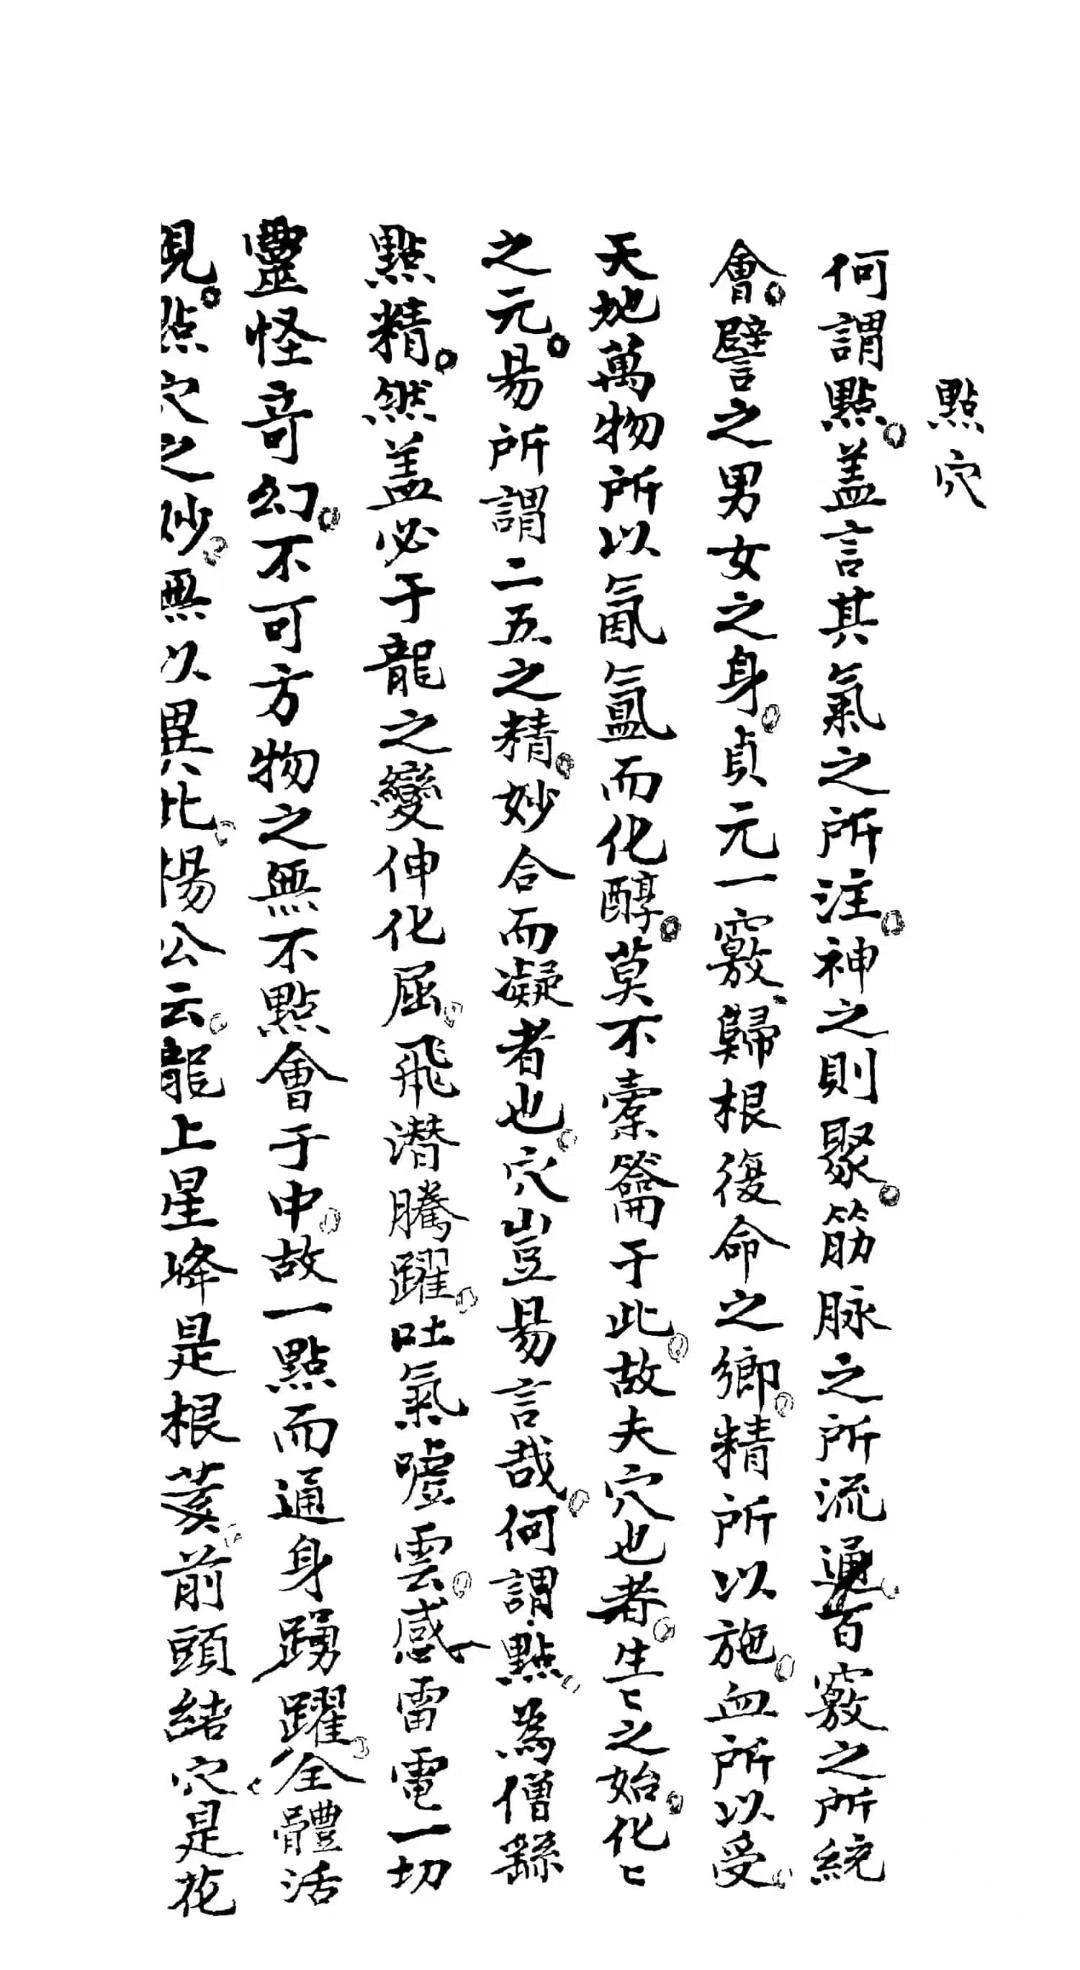 點穴
何謂點盖言其氣之所注神之則聚筋脉之所流通百竅之所統
會譬之男女之身貞元一竅歸根復命之鄉精所以施血所以受
天地萬物所以氤氲而化醇莫不橐籥于此故夫穴也者生〻之始化〻
之元易所謂二五之精妙合而凝者也穴豈易言哉何謂點為僧繇
點精然盖必于龍之變伸化屈飛潜騰躍吐氣嘘雲感雷電一切
靈怪奇幻不可方物之無不點會于中故一點而通身踴躍全體活
現點穴之妙無以異比楊公云龍上星峰是根荄前頭結穴是花